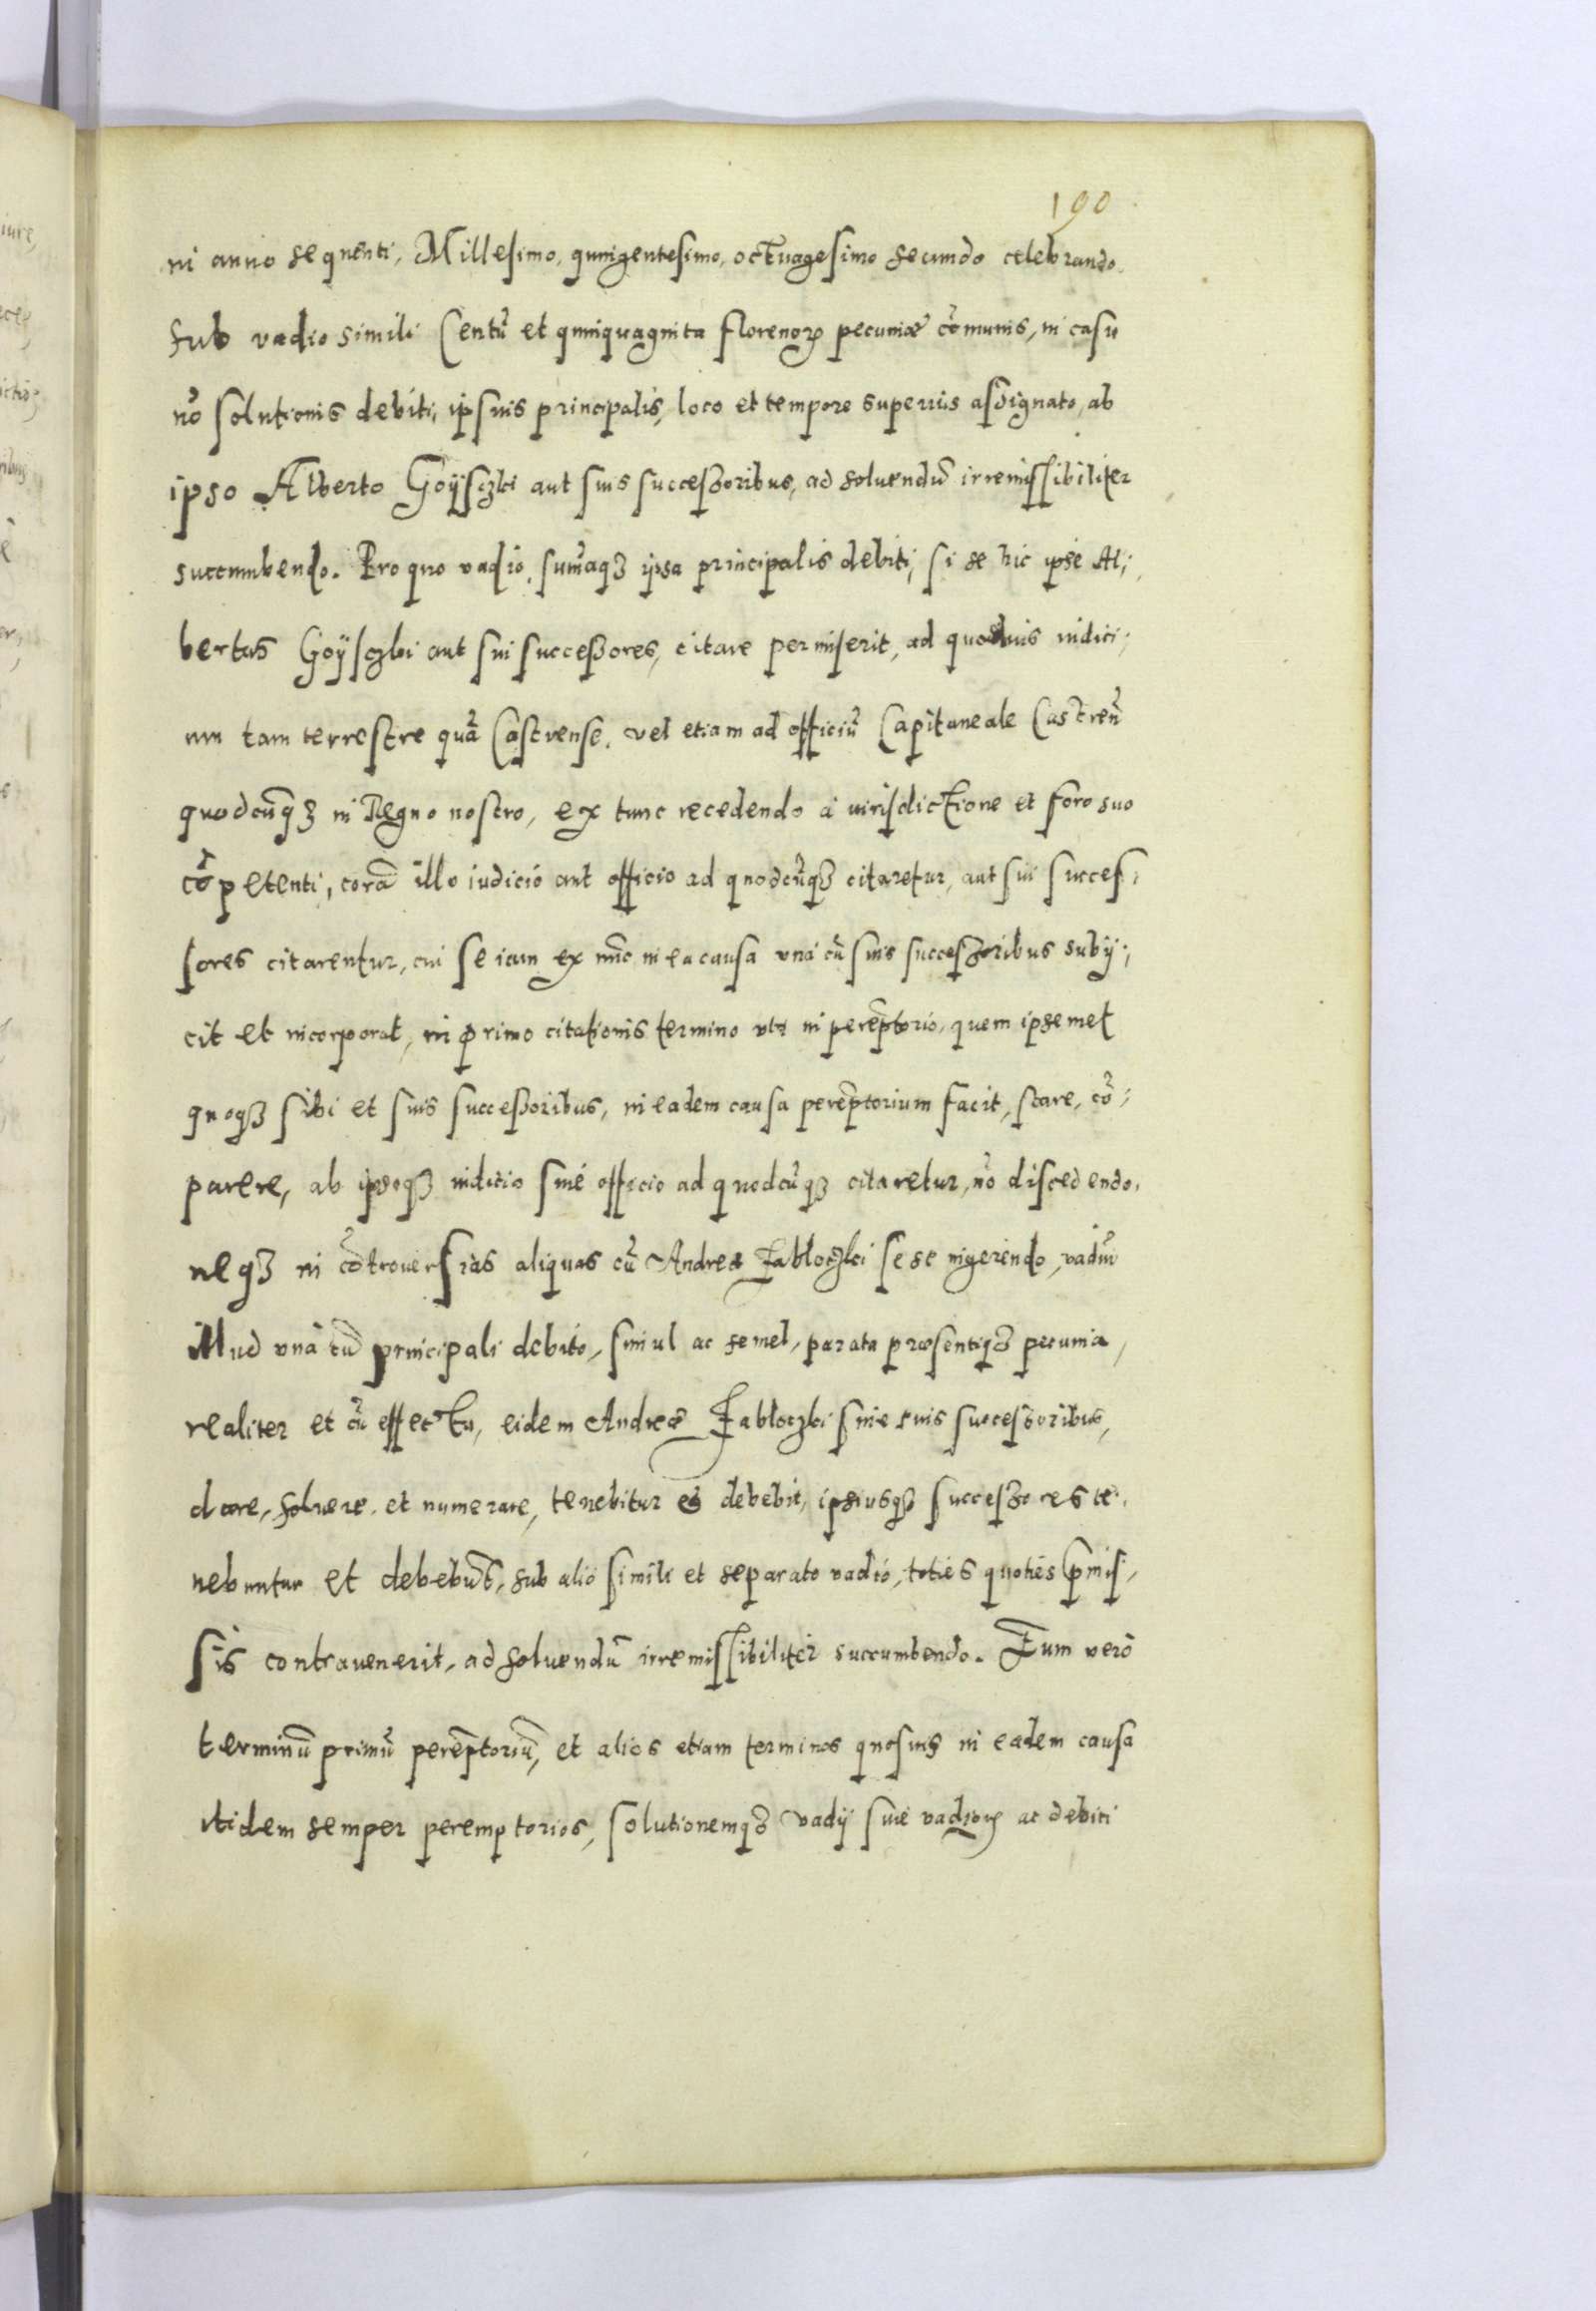 190
in anno sequenti, Millesimo, quingentesimo, octuagesimo secundo celebrando.
sub vadio simili Centũ et quinquaginta florenoꝝ pecuniæ cõmunis, in casu
nõ solutionis debiti, ipsius principalis, loco et tempore superius assignato, ab
ipso Alberto Goÿsczki aut suis successoribus, ad soluendũ irremissibiliter
succumbendo. Pro quo vadio, sum̃aqꝫ ipsa principalis debiti, si se hic ipse Al;
bertus Goÿsczki aut sui successores, citare permiserit, ad quoduis iudici;
um tam terrestre quã Castrense, vel etiam ad officiũ Capitaneale Castreñ
quodcũqꝫ in Regno nostro, ex tunc recedendo à iurisdictione et foro suo
cõpetenti, corã illo iudicio aut officio ad quodcũqꝫ citaretur, aut sui succes;
sores citarentur, cui se iam ex nũc in ea causa vnà cũ suis successoribus subij;
cit et incorporat, in primo citationis termino vti in perẽptorio, quem ipsemet
quoqꝫ sibi et suis successoribus, in eadem causa perẽptorium facit, stare, cõ;
parere, ab ipsoqꝫ iudicio siue officio ad quodcũqꝫ citaretur, nõ discedendo,
neqꝫ in cõtrouersias aliquas cũ Andrea Jabloczki sese ingerendo, vadiũ
illud vnà cũ principali debito, simul ac semel, parata præsentiqꝫ pecunia,
realiter et cũ effectu, eidem Andreæ Jabloczki siue suis successoribus,
dare, soluere, et numerare, tenebitur et debebit, ipsiusqꝫ successores te;
nebuntur et debebũt, sub alio simili et separato vadio, toties quoties p̃mis;
sis contrauenerit, ad soluendũ irremissibiliter succumbendo. Eum verò
terminũ primũ perẽptoriũ, et alios etiam terminos quosuis in eadem causa
itidem semper peremptorios, solutionemqꝫ vadij siue vadioꝝ ac debiti